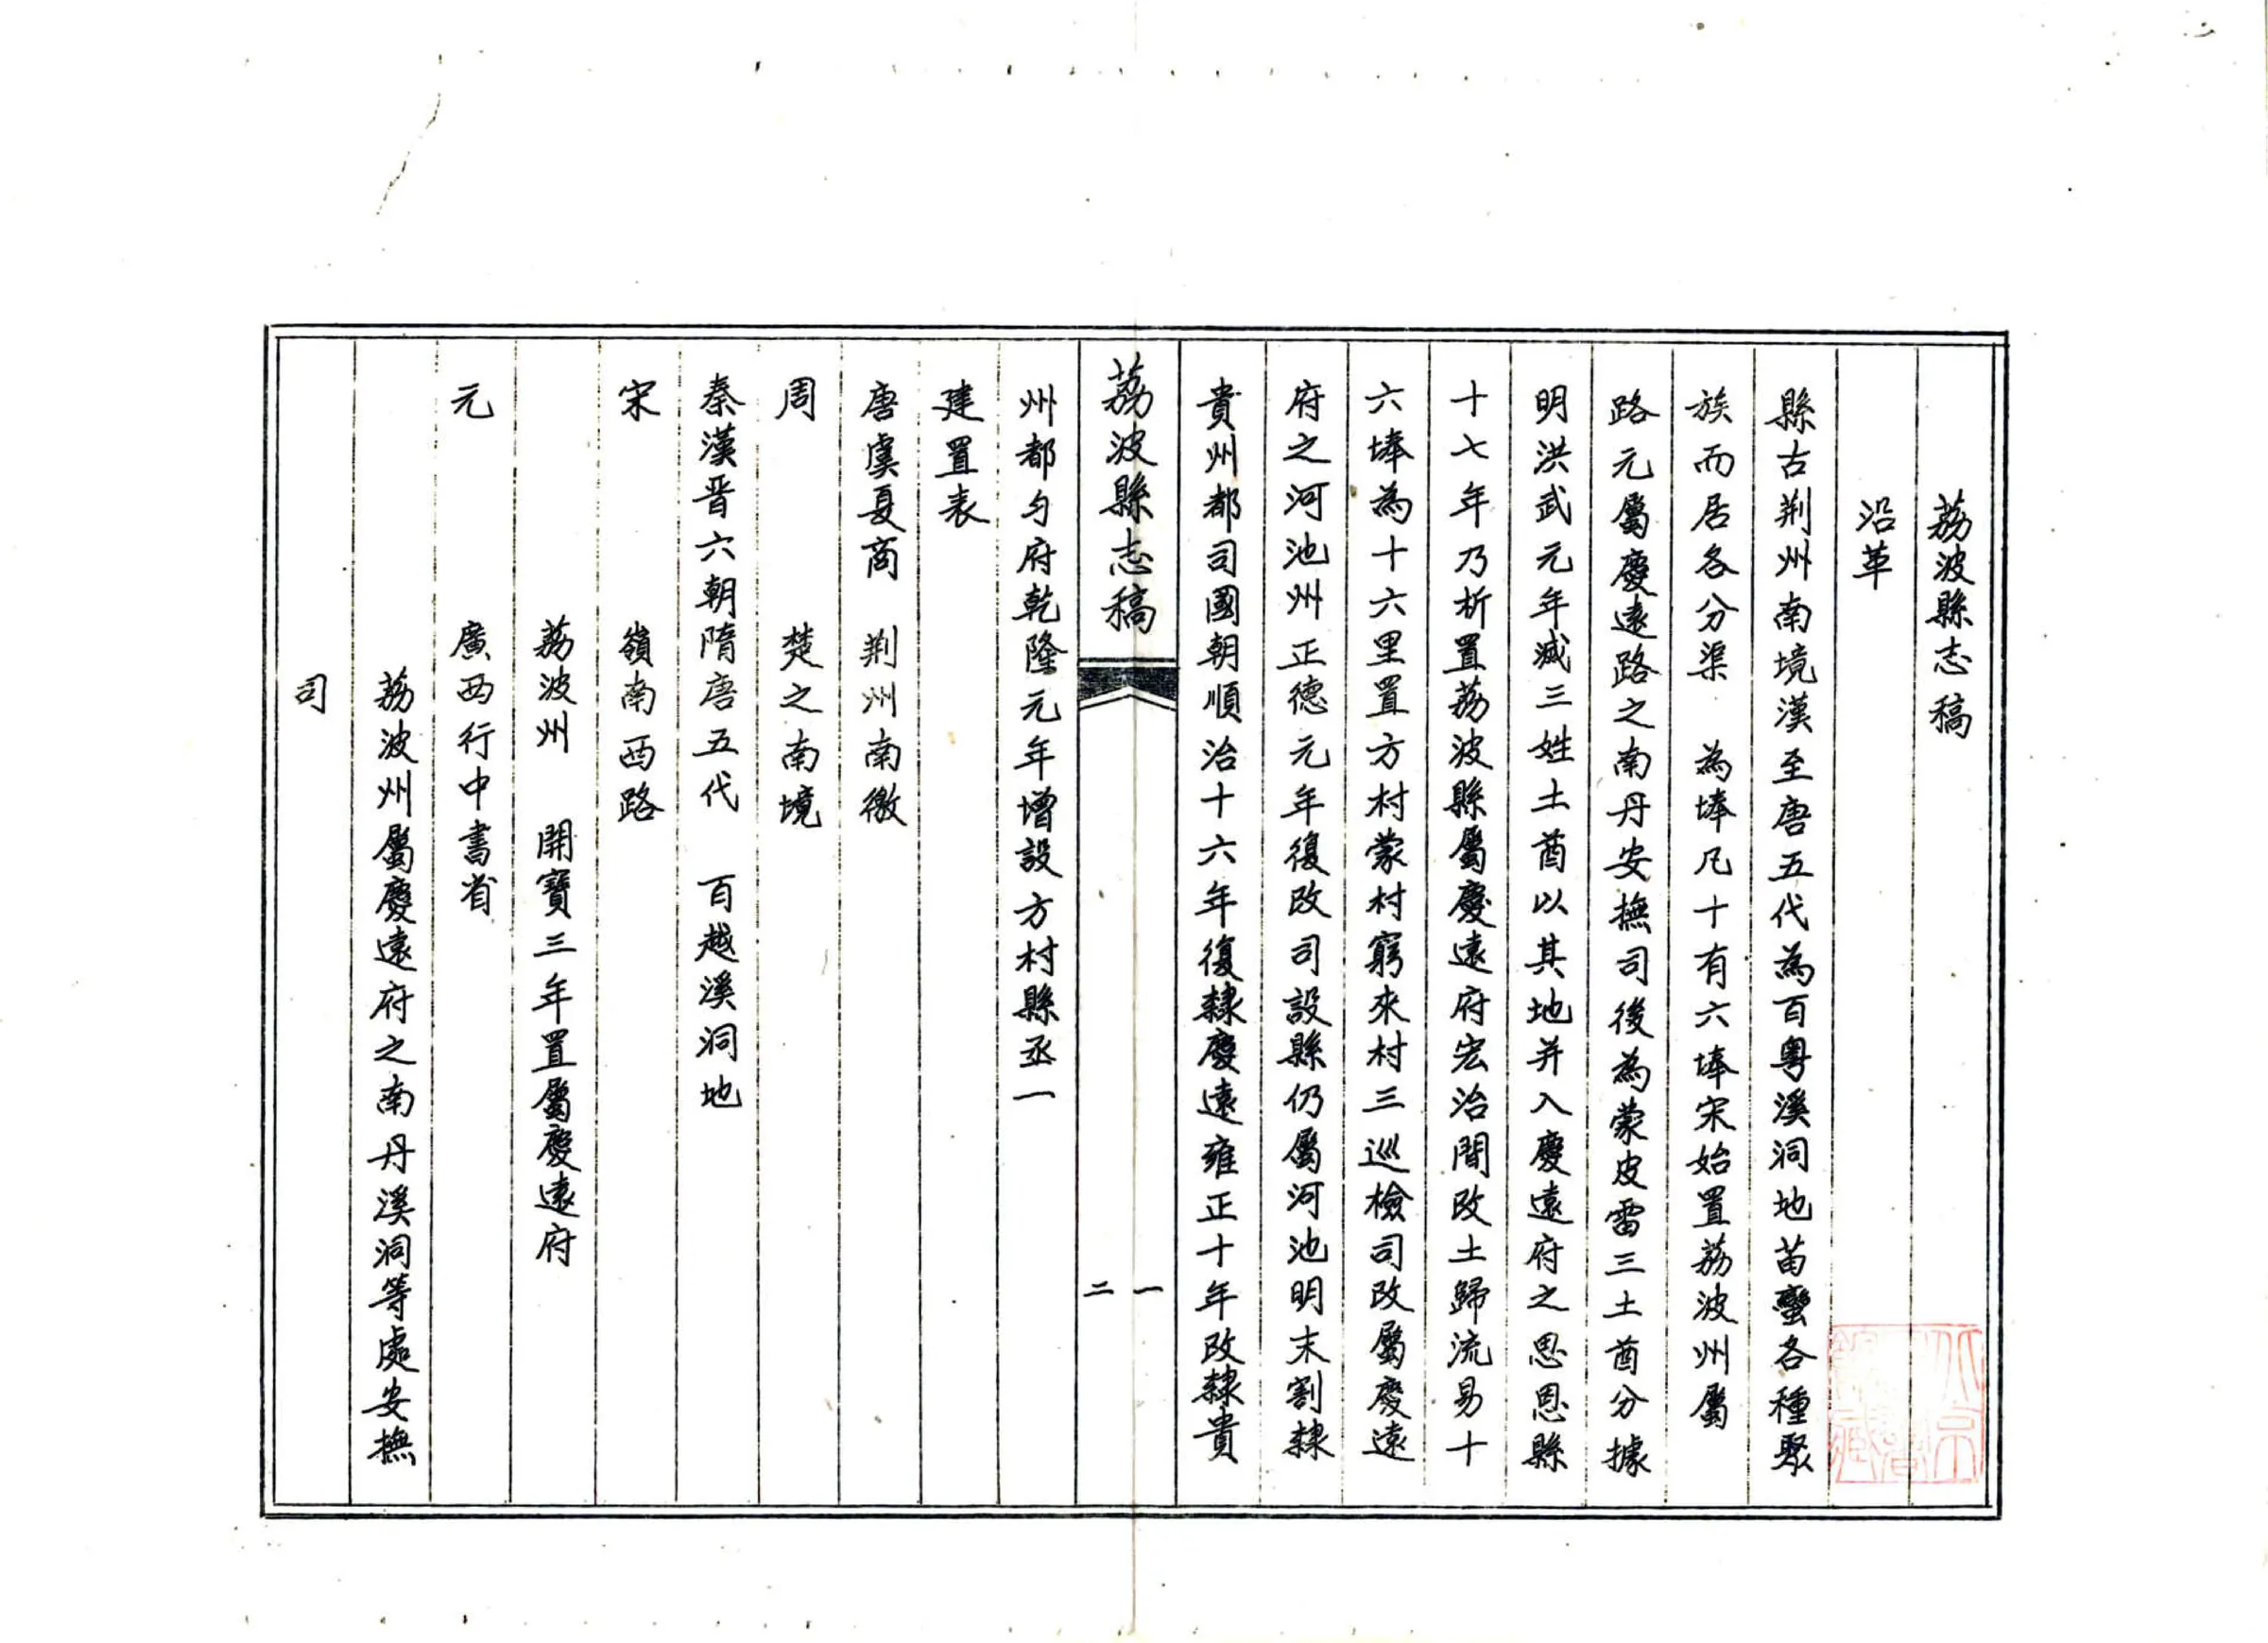 荔波縣志稿
沿革
縣古荆州南境漢至唐五代為百粤溪洞地苗蠻各種聚
族而居各分渠　為埲凡十有六埲宋始置荔波州屬
路元屬慶遠路之南丹安撫司後為蒙皮雷三土酋分據
明洪武元年减三姓土酋以其地并入慶遠府之思恩縣
十七年乃析置荔波縣屬慶遠府宏治間改土歸流易十
六埲為十六里置方村蒙村窮來村三巡檢司改屬慶遠
府之河池州正德元年復改司設縣仍屬河池明末割隸
貴州都司國朝順治十六年復隸慶遠雍正十年改隸貴
荔波縣志稿
一
二
州都匀府乾隆元年增設方村縣丞一
建置表
唐虞夏商　荆州南徼
周　楚之南境
秦漢晋六朝隋唐五代　百越溪洞地
宋　嶺南西路
荔波州　開寶三年置屬慶遠府
元　廣西行中書省
荔波州屬慶遠府之南丹溪洞等處安撫
司